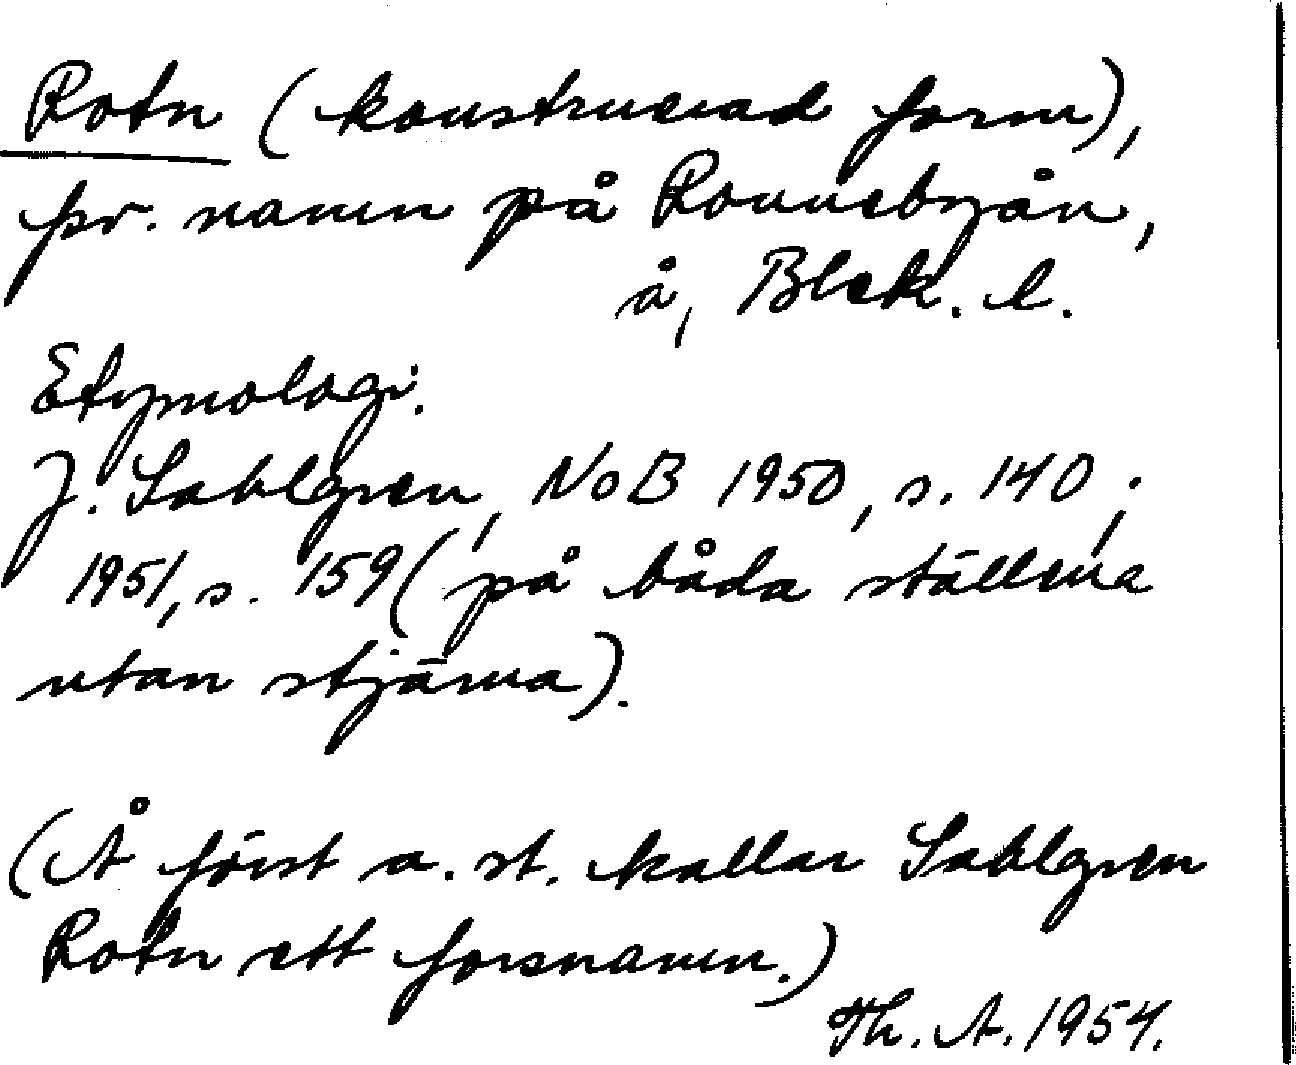 Rotn (konstruerad form),
fsv. namn på Ronnebyån,
å, Blek. l.
Etymologi.
J. Sahlgren, NoB 1950, s. 140;
1951, s. 159 (på båda ställena
utan stjärna).
(Å först a. st. kallar Sahlgren
Rotn ett forsnamn.)
Th. A. 1954.